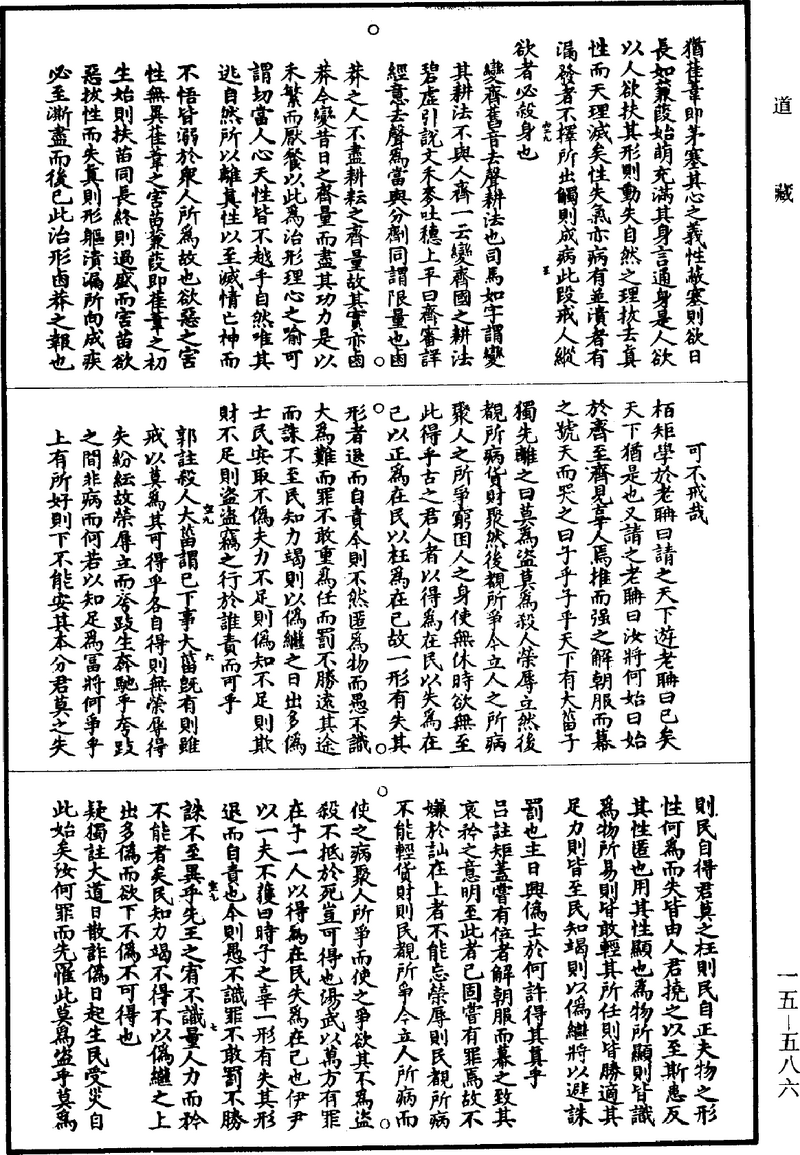 道藏
猶萑葦即茅塞其心之義性蔽塞則欲日
長如蒹葭始萌充滿其身言通身是人欲
以人欲扶其形則動失自然之理拔去真
性而天理滅矣性失氣亦病有並潰者有
漏發者不擇所出觸則成病此段戒人縱
欲者必殺身也
變齊舊音去聲耕法也司馬如字謂變
其耕法不與人齊一云變齊國之耕法
碧虛引說文禾麥吐穗上平曰齊審詳
經意去聲為當與分劑同謂限量也鹵
莽之人不盡耕耘之齊量故其實亦鹵
莽今變昔日之齊量而盡其功力是以
禾繁而厭飱以此為治形理心之喻可
謂切當人心天性皆不越乎自然唯其
逃自然所以離真性以至滅情亡神而
不悟皆溺於衆人所為故也欲惡之害
性無異萑葦之害苗蒹葭即萑葦之初
生始則扶苗同長終則過盛而害苗欲
惡拔性而失真則形軀潰漏所向成疾
必至澌盡而後已此治形鹵莽之報也
可不戒哉
栢矩學於老聃曰請之天下遊老聃曰已矣
天下猶是也又請之老聃曰汝將何始曰始
於齊至齊見辜人焉推而强之解朝服而幕
之號天而哭之曰子乎子乎天下有大菑子
獨先離之曰莫為盜莫為殺人榮辱立然後
覩所病貨財聚然後覩所爭今立人之所病
聚人之所爭窮困人之身使無休時欲無至
此得乎古之君人者以得為在民以失為在
己以正為在民以枉為在己故一形有失其
形者退而自責今則不然匿為物而愚不識
大為難而罪不敢重為任而罰不勝遠其途
而誅不至民知力竭則以偽繼之日出多偽
士民安取不偽夫力不足則偽知不足則欺
財不足則盜盜竊之行於誰責而可乎
郭註殺人大菑謂已下事大菑既有則雖
戒以莫為其可得乎各自得則無榮辱得
失紛紜故榮辱立而夸跂生奔馳乎夸跂
之間非病而何若以知足為富將何爭乎
上有所好則下不能安其本分君莫之失
則民自得君莫之枉則民自正夫物之形
性何為而失皆由人君撓之以至斯患反
其性匿也用其性顯也為物所顯則皆識
為物所易則皆敢輕其所任則皆勝適其
足力則皆至民知竭則以偽繼將以避誅
罰也主日興偽士於何許得其真乎
呂註矩蓋嘗有位者解朝服而幕之致其
哀矜之意明至此者已固嘗有罪焉故不
嫌於訕在上者不能忘榮辱則民覩所病
不能輕貨財則民覩所爭今立人所病而
使之病聚人所爭而使之爭欲其不為盜
殺不抵於死豈可得也湯武以萬方有罪
在于一人以得為在民失為在己也伊尹
以一夫不獲曰時予之辜一形有失其形
退而自責也今則愚不識罪不敢罰不勝
誅不至異乎先王之宥不識量人力而矜
不能者矣民知力竭不得不以偽繼之上
出多偽而欲下不偽不可得也
疑獨註大道日散詐偽日起生民受災自
此始矣汝何罪而先罹此莫為盜乎莫為
一五—五八六